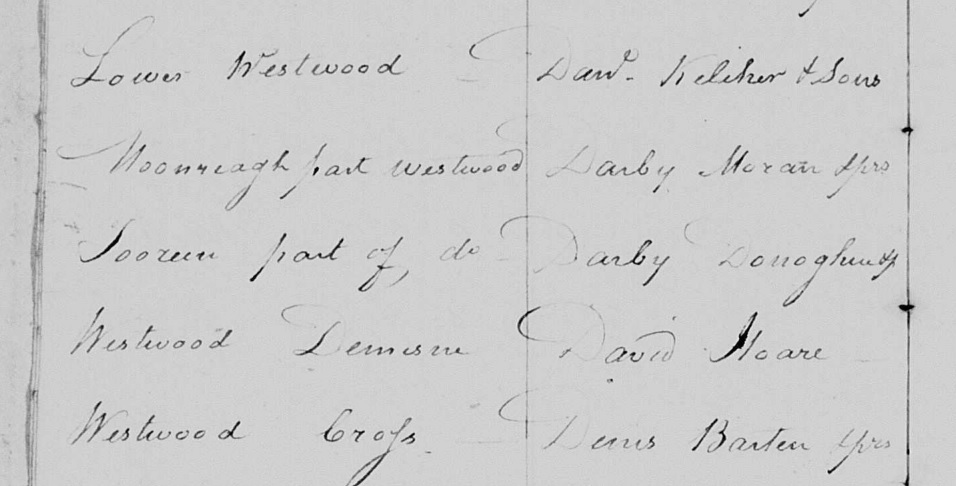 Lower Westwood - Danl. Keleher & Sons
Moonreagh part Westwood Darby Moran & prs
Tooreen part of, do - Darby Donoghue & p
Westwood Demesne David Hoare
Westwood Cross Denis Barten & prs